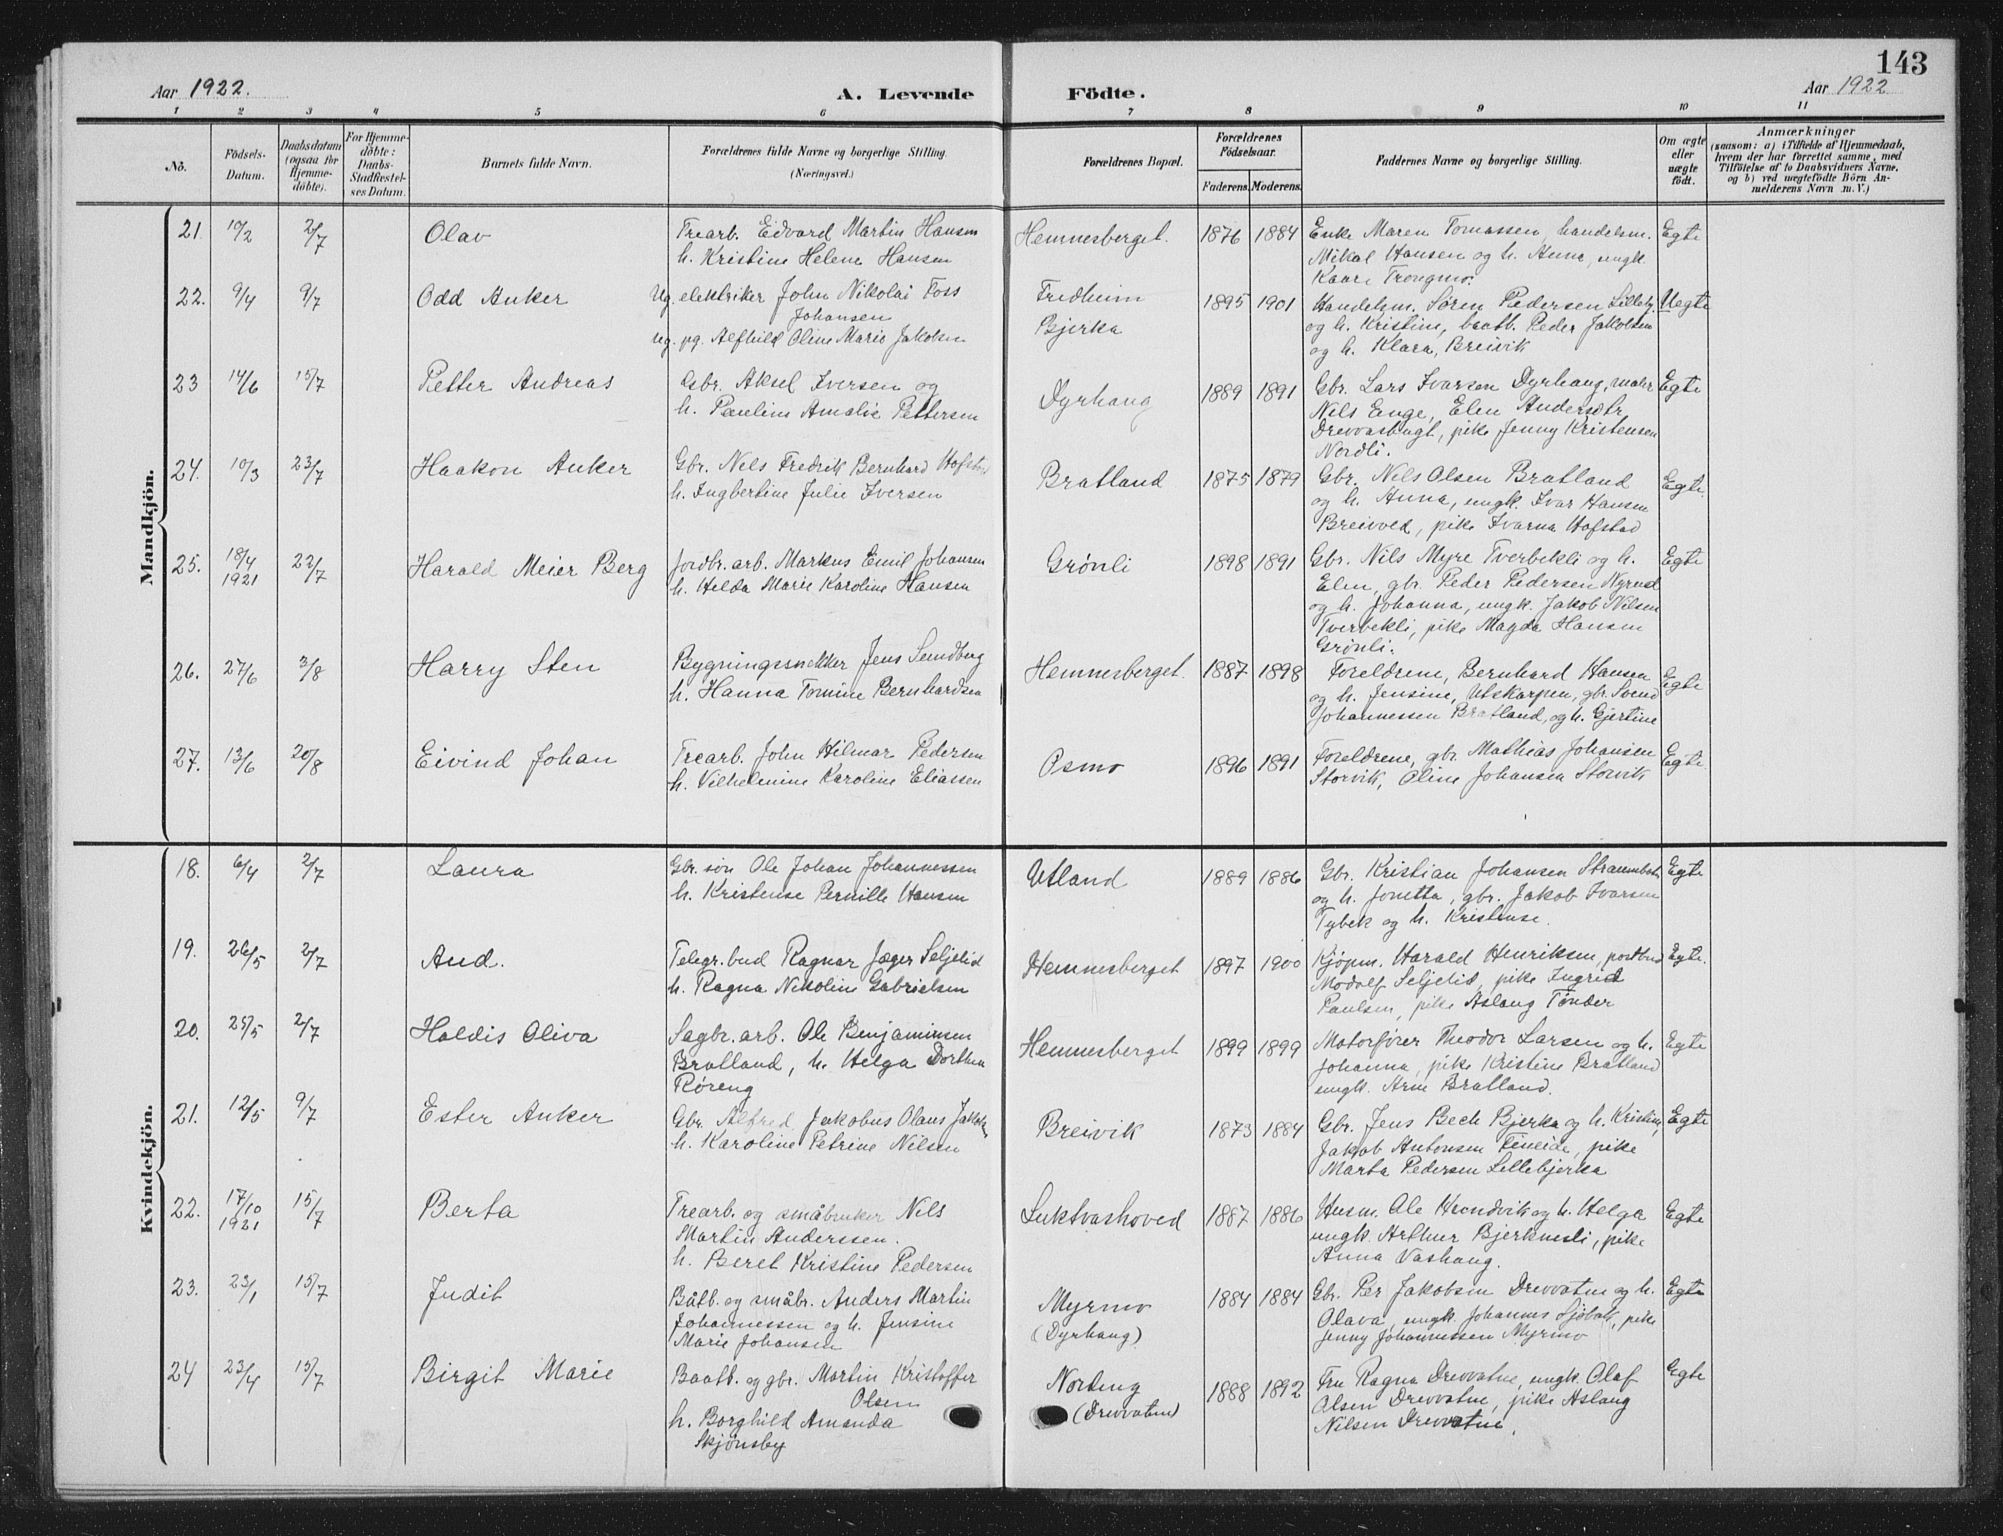 143
Aar 1922. A. Levende Födte. Aar 1922
1 2 3 4 5 6 7 8 9 10 11
No. Födsels-Datum. Daabsdatum (ogsaa for Hjemme-döbte). For Hjemme-döbte: Daabs-Stadfæstel-ses Datum. Barnets fulde Navn. Forældrenes fulde Navne og borgerlige Stilling. (Næringsvei.) Forældrenes Bopæl. Forældrenes Födselsaar. Faderens. Moderens. Faddernes Navne og borgerlige Stilling. Om ægte eller uægte födt. Anmærkninger (saasom: a) i Tilfælde af Hjemmedaab, hvem der har forrettet samme, med Tilföielse af to Daabsvidners Navne, og b) ved uægtefödte Börn An-melderens Navn m. V.)
Mandkjön.
21. 10/2 2/7 Olav Trearb. Eidvard Martin Hansen Hemnesberget. 1876 1884 Enke Maren Tomassen, handelsm. Egte
h. Kristine Helene Hansen Mikal Hansen og h. Anna, ungk.
Kaare Trongmo.
22. 9/4 9/7 Odd Anker Ug. elektriker John Nikolai Foss Fredheim 1895 1901 Handelsm. Søren Pedersen Lillebj. Uegte
Johansen Bjerka og h. Kristine, baatb. Peder Jakobsen
ug. pg. Alfhild Oline Marie Jakobsen og h. Klara, Breivik
23 14/6 15/7 Petter Andreas Gbr. Aksel Iversen og Dyrhaug 1889 1891 Gbr. Lars Ivarsen Dyrhaug, maler Egte
h. Pauline Amalie Pettersen Nils Enge, Elen Andersdtr
Drevvasbugt, pike Jenny Kristensen
Nordli.
24. 10/3 23/7 Haakon Anker Gbr. Nils Fredrik Bernhard Hofstad Bratland 1875 1879 Gbr. Nils Olsen Bratland Egte.
h. Ingbertine Julie Iversen og h. Anna, ungk. Ivar Hansen
Breivold, pike Ivarna Hofstad
25. 18/4 1921 23/7 Harald Meier Berg Jordbr. arb. Markus Emil Johansen Grønli 1898 1891 Gbr. Nils Myre Tverbekli og h. Egte
h. Helda Marie Karoline Hansen Elen, gbr. Peder Pedersen Nyrud
og h. Johanna, ungk. Jakob Nilsen
Tverbekli, pike Magda Hansen
Grønli.
26. 27/6 3/8 Harry Sten Bygningssnekker Jens Sundberg Hemnesberget. 1887 1898 Foreldrene, Bernhard Hansen Egte
h. Hanna Tomine Bernhardsen og h. Jensine, Utskarpen, gbr. Svend
Johannessen Bratland, og h. Gjertine
27. 13/6 20/8 Eivind Johan Trearb. John Hilmar Pedersen Osmo 1896 1891 Foreldrene, gbr. Mathias Johansen Egte
h. Vilhelmine Karoline Eliassen Storvik, Oline Johansen Storvik
Kvindekjön.
18. 6/4 2/7 Laura Gbr. søn Ole Johan Johannessen Utland 1889 1886 Gbr. Kristian Johansen Egte
h. Kristense Pernille Hansen og h. Jonetta, gbr. Jakob Ivarsen
Tybek og h. Kristense.
19. 26/5 2/7 Aud. Telegr. bud Ragnar Jæger Seljelid Hemnesberget 1897 1900 Kjøpm. Harald Henriksen, postbud Egte.
h. Ragna Nikoline Gabrielsen Modolf Seljelid, pike Ingrid
Paulsen, pike Aslaug Tønder
20. 25/5 2/7 Haldis Oliva Sagbr. arb. Ole Benjaminsen Hemnesberget 1899 1899 Motorfører Theodor Larsen og h. Egte
Bratland, h. Helga Dorthea Johanna, pike Kristine Bratland
Røreng ungk. Arne Bratland.
21. 12/5 9/7 Ester Anker Gbr. Alfred Jakobus Olaus Jakobs. Breivik 1873 1884 Gbr. Jens Bech Bjerka og h. Kristine, Egte
h. Karoline Petrine Nilsen Jakob Antonsen Fineide, pike
Marta Pedersen Lillebjerka
22. 17/10 1921 15/7 Berta Trearb. og småbruker Nils Luktvashoved 1887 1886 Husm. Ole og h. Helga Egte
Martin Anderssen. ungk. Arthur Bjerknesli, pike
h. Beret Kristine Pedersen Anna Vashaug.
23. 23/1 15/7 Judit Båtb. og småbr. Anders Martin Myrmo 1884 1884 Gbr. Per Jakobsen Drevvatne og h. Egte
Johannessen og h. Jensine (Dyrhaug) Olava, ungk. Johannes Sjøbak, pike
Marie Johansen Jenny Johannessen Myrmo
24 23/4 15/7 Birgit Marie Baatb. og gbr. Martin Kristoffer Nordeng 1888 1892 Fru Ragna Drevvatne, ungk. Olaf Egte
Olsen (Drevvatne) Olsen Drevvatne, pike Aslaug
h. Borghild Amanda Nilsen Drevvatne.
Skjønsby